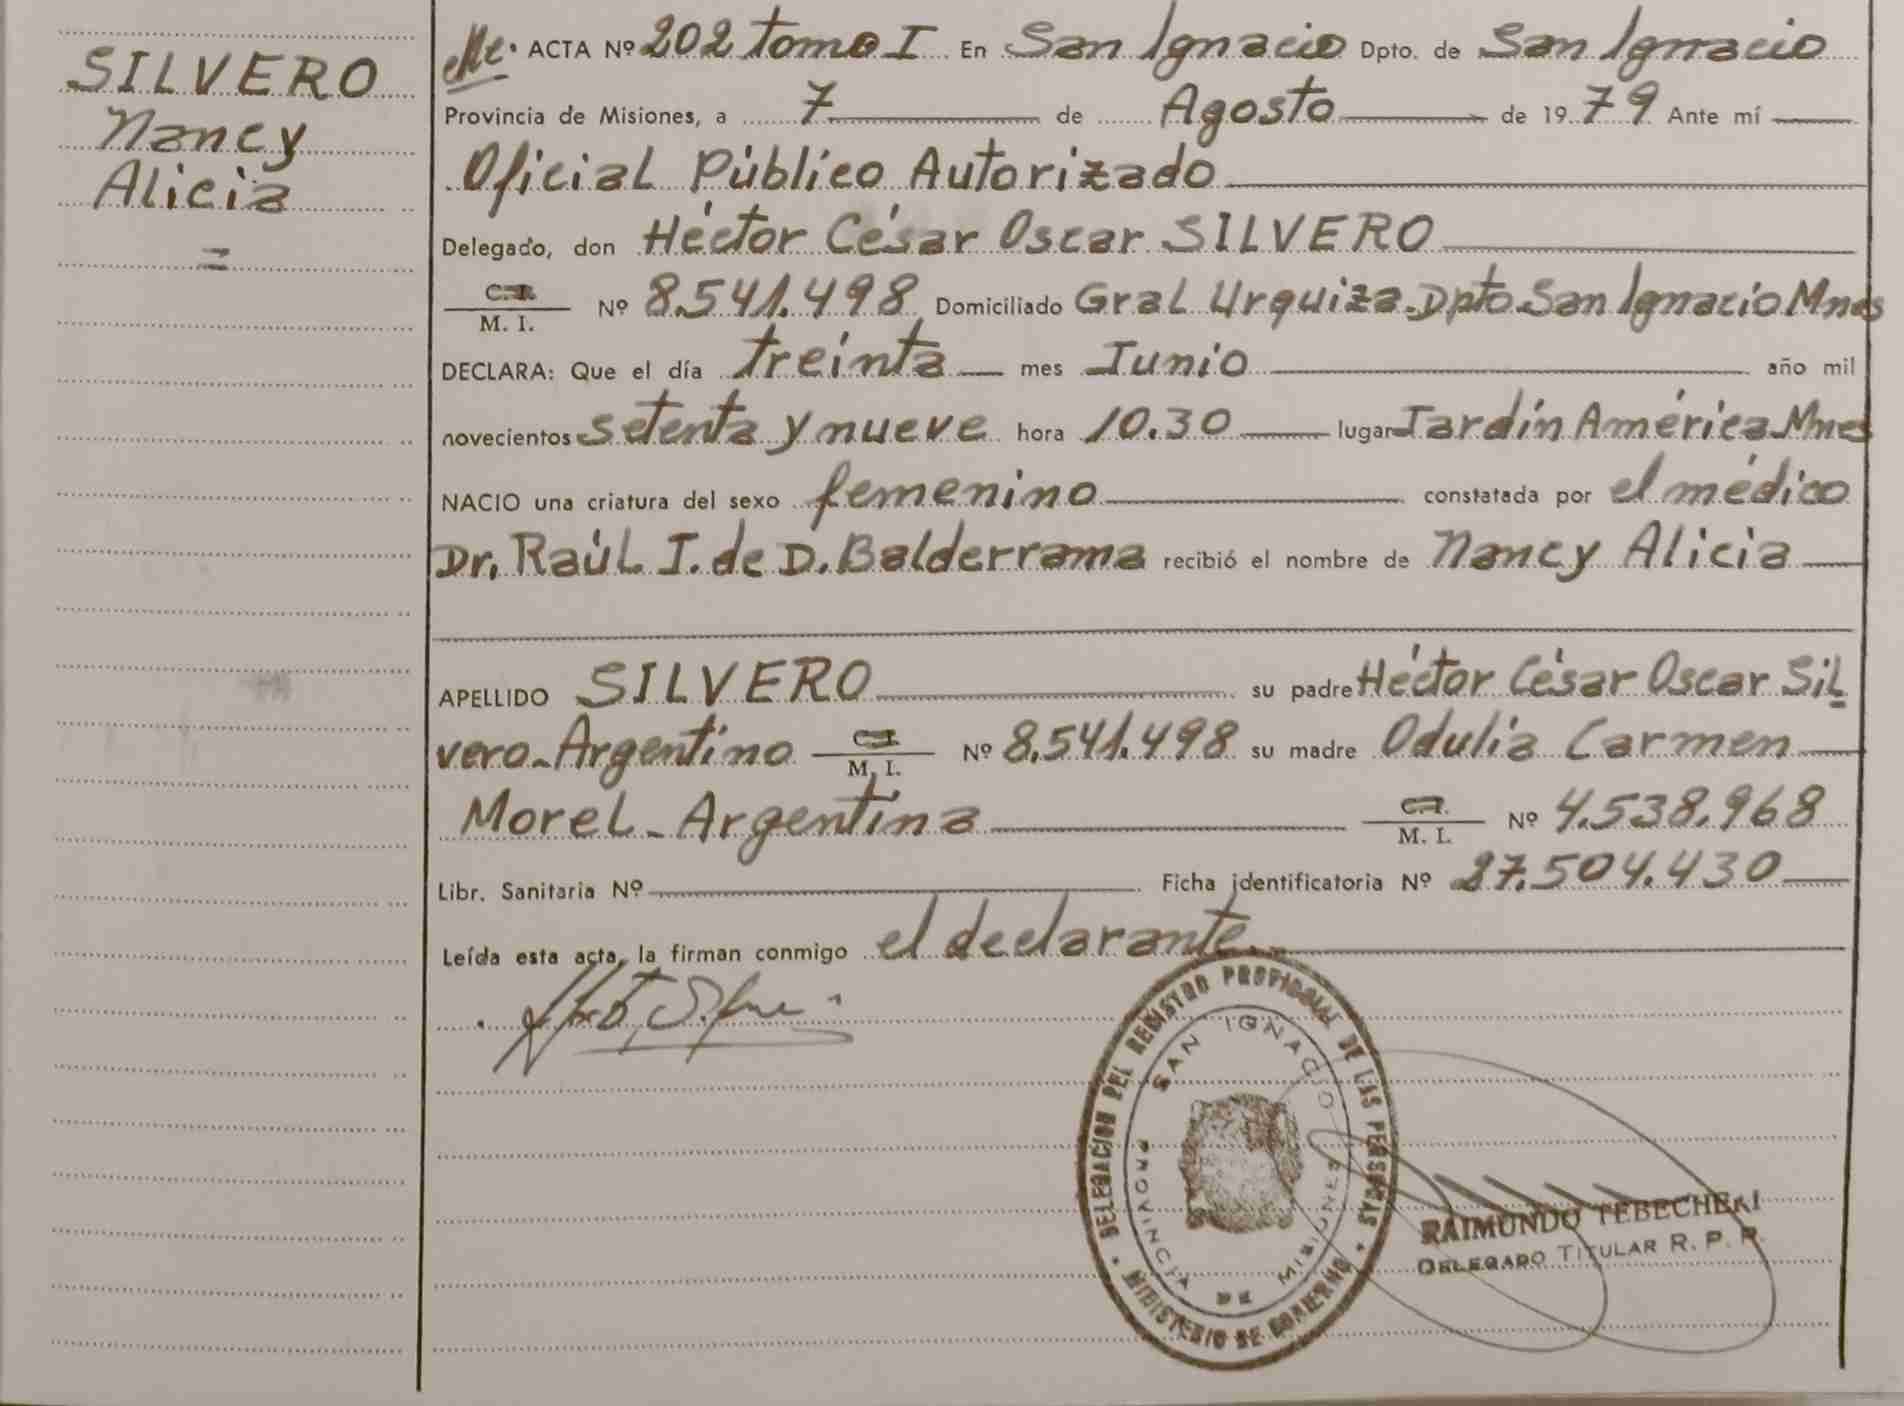 SILVERO
Nancy
Alicia
=
ACTA Nº 202 tomo I En San Ignacio Dpto. de San Ignacio
Provincia de Misiones, a 7 de Agosto de 1979 Ante mí
Oficial Público Autorizado
Delegado, don Héctor César Oscar SILVERO
C.I.
M. I. Nº 8.541.498 Domiciliado Gral Urquiza. Dpto San Ignacio Mnes
DECLARA: Que el día treinta mes Junio año mil
novecientos setenta y nueve hora 10.30 lugar Jardín América Mnes
NACIO una criatura del sexo femenino constatada por el médico
Dr. Raúl I. de D. Balderrama recibió el nombre de Nancy Alicia
APELLIDO SILVERO su padre Héctor César Oscar Sil
vero-Argentino C.I. M. I. Nº 8.541.498 su madre Odulia Carmen
Morel-Argentina C.I. M. I. Nº 4.538.968
Libr. Sanitaria Nº Ficha identificatoria Nº 27.504.430
Leída esta acta, la firman conmigo el declarante.
DELEGACION DEL REGISTRO PROVINCIAL DE LAS PERSONAS
MINISTERIO DE GOBIERNO
SAN IGNACIO
PROVINCIA DE MISIONES
RAIMUNDO TEBECHERI
DELEGADO TITULAR R. P. P.